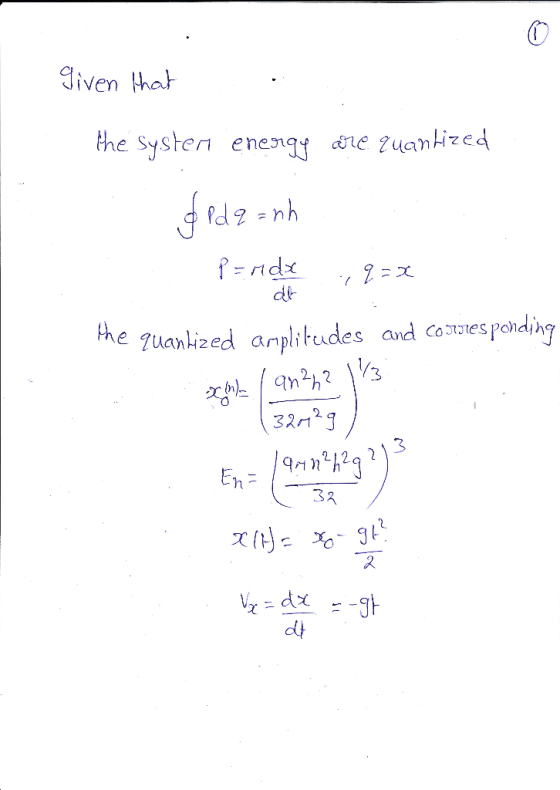 ①
Given that
the system energy are quantized
∮ Pdq = nh
P = m dx/dt , q = x
the quantized amplitudes and corresponding
x₀⁽ⁿ⁾ = (9n²h²/32m²g)^1/3
Eₙ = (9mn²h²g²/32)^3
x(t) = x₀ - gt²/2
Vₓ = dx/dt = -gt